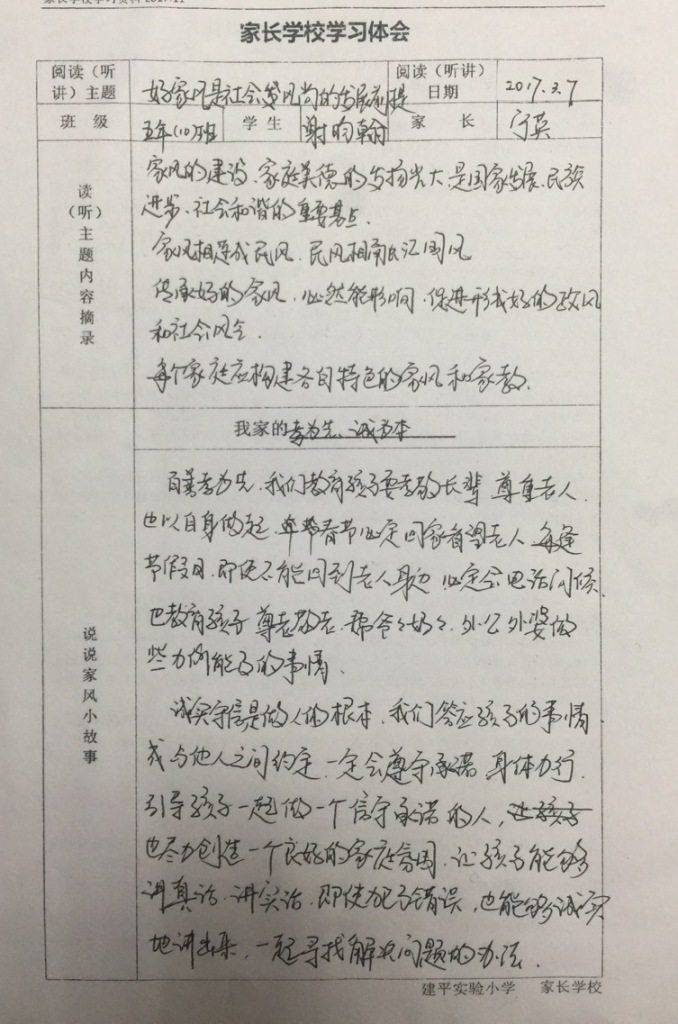 家长学校学习资料 2017.11
家长学校学习体会
阅读（听讲）主题 好家风是社会党风尚的发展前提 阅读（听讲）日期 2017.3.7
班级 五年(10)班 学生 谢昀翰 家长 宁英
读（听）主题内容摘录
家风的建设、家庭美德的发扬光大,是国家发展、民族
进步、社会和谐的重要基点.
家风相连成民风,民风相融汇国风
传承好的家风,必然能影响,促进形成好的政风
和社会风气.
每个家庭应构建各自特色的家风和家教.
我家的孝为先、诚为本
说说家风小故事
百善孝为先,我们教育孩子要孝敬长辈 尊重老人.
也以自身做起,每年春节必定回家看望老人 每逢
节假日,即使不能回到老人身边 必定会电话问候、
也教育孩子 尊老敬老,帮爷々奶々、外公外婆做
些力所能及的事情.
诚实守信是做人的根本,我们答应孩子的事情、
或与他人之间约定,一定会遵守承诺 身体力行.
引导孩子一起做一个信守承诺的人,让孩子
也尽力创造一个良好的家庭氛围,让孩子能够
讲真话、讲实话,即使犯了错误,也能够诚实
地讲出来,一起寻找解决问题的办法.
建平实验小学 家长学校